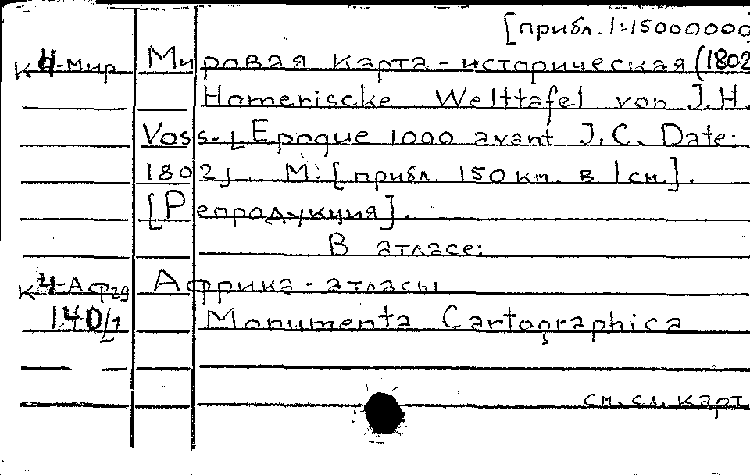 [прибл. 1:15000000]
К4-Мир Мировая карта - историческая (1802
Homerische Welttafel von J.H.
Voss. [Epoque 1000 avant J.C. Date:
1802]. М: [прибл. 150 км. в 1 см.].
[Репродукция].
В атласе:
К4-Афр Африка - атласы
140/1 Monumenta Cartographica
см. сл. карт.